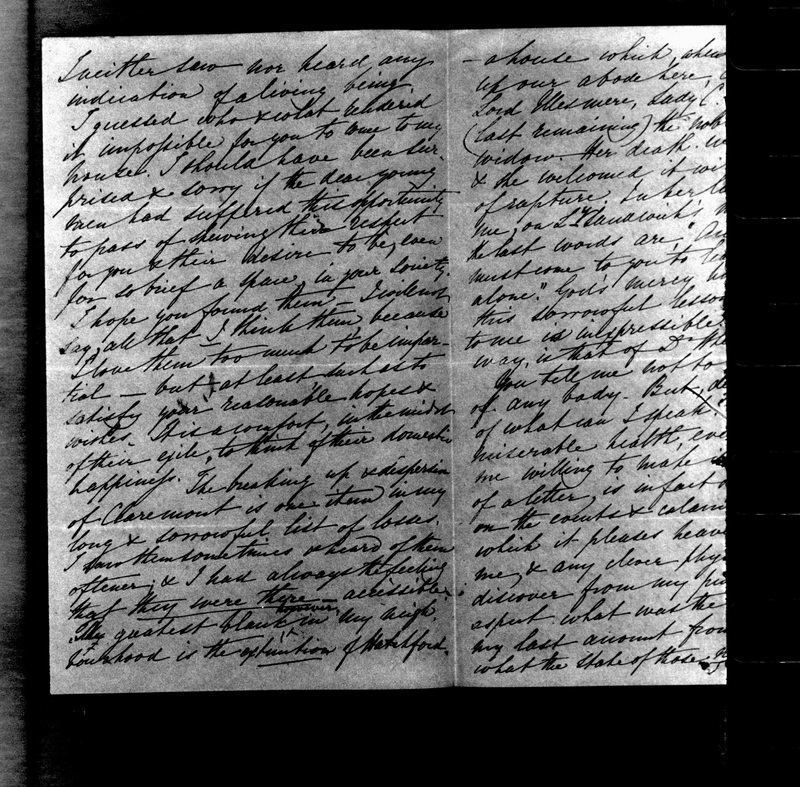 I neither saw nor heard any
indication of a living being.
I guessed who & what rendered
it impossible for you to come to my
house. I should have been sur-
prised & sorry if the dear young
men had suffered this opportunity
to pass of shewing their respect
for you & their desire to be, even
for so brief a space, in your society.
I hope you found them – I will not
say, all that I think them, because
I love them too much to be impar-
tial – but at least such as to
satisfy your reasonable hopes &
wishes. It is a comfort, in the midst
of their exile, to think of their domestic
happiness. The breaking up & dispersion
of Claremont is one item in my
long & sorrowful list of losses.
I saw them sometimes & heard of them
oftener; & I had always the feeling
that they were there – accessible.
The greatest blank however in my neigh-
bourhood is the extinction of Hatchford.
– a house which, when
up our abode here,
Lord Ellesmere, Lady C.
(last remaining) the
widow. Her death
& she welcomed it
of rapture. In her
me, on Ly Sandwich's
the last words are,
must come to you to
alone." God's mercy
this sorrowful lesson
to me is inexpressible.
way, is that of a
You tell me not to
of any body. But,
of what can I speak?
miserable health,
me willing to make
of a letter, is in fact
on the events &
which it pleases heaven
me, & any clever
discover from my
aspect what was the
my last account from
what the state of those